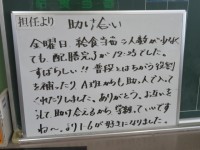 担任より　助け合い
金曜日 給食当番の人数が少なくても、配膳完了が12:25でした。
すばらしい!! 普段とはちがう役割を補ったり、A内Bからも助人で入ってくれたりしました。ありがとう。お互いを
して、助け合えるから学級っていいですね〜。より1-6が好きになりました。